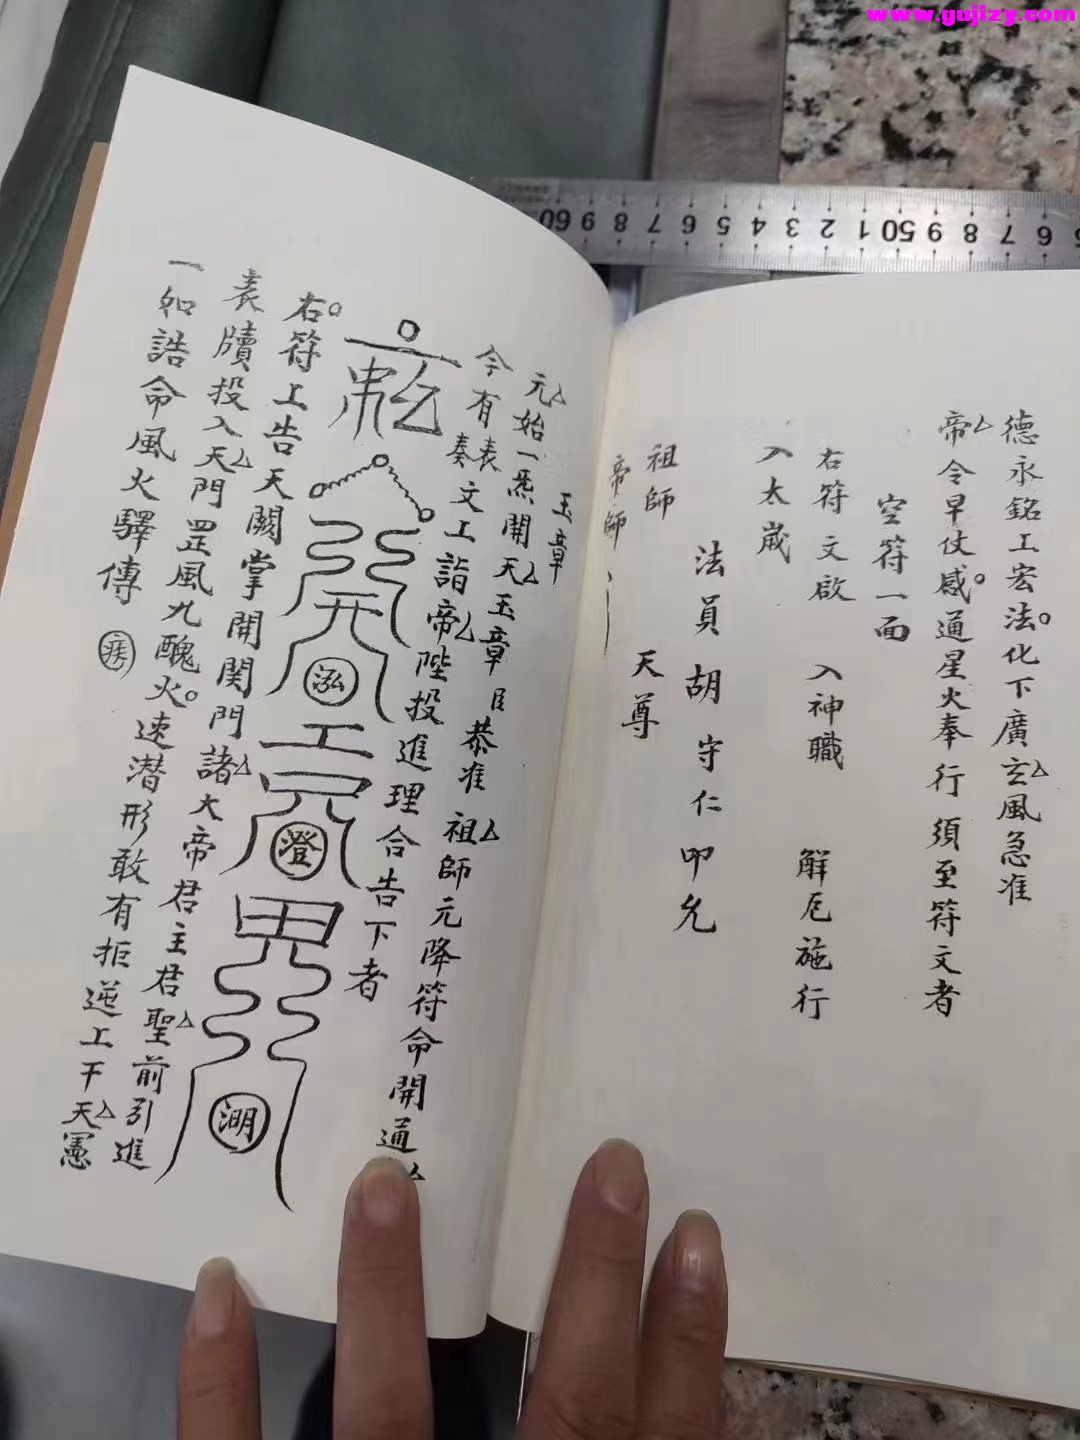 www.gujizy.com
60 9 8 7 6 5 4 3 2 1 50 9 8 7 6
德永銘工宏法化下廣玄風急准
帝令早仗感通星火奉行須至符文者
空符一面
右符文啟 入神職 解厄施行
入太歲
法員胡守仁叩允
祖師
帝師
天尊
玉章
元始一炁開天玉章臣恭准祖師元降符命開通
今有表奏文工詣帝陛投進理合告下者
泓
澄
澖
右符工告天闕掌開関門諸大帝君主君聖前引進
表牘投入天門罡風九醜火速潜形敢有拒逆工干天憲
一如誥命風火驛傳